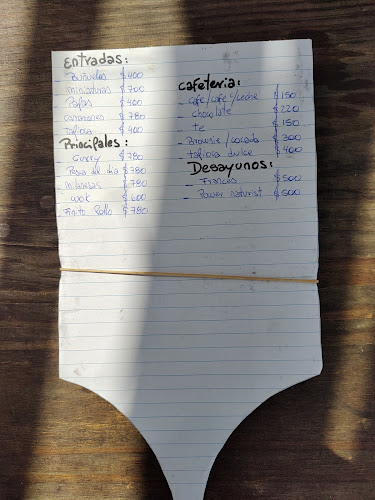 Entradas:
Buñuelos $400
miniaturas $700
Papas $400
camarones $780
tapioca $400
Principales:
Curry $780
Pesca del día $780
milanesas $780
wok $600
Finito Pollo $780
Cafeteria:
- cafe/cafe c/leche $150
- chocolate $220
- te $150
- Brownie/cocada $300
- tapioca dulce $400
Desayunos:
- Frances $500
- Power naturist $500